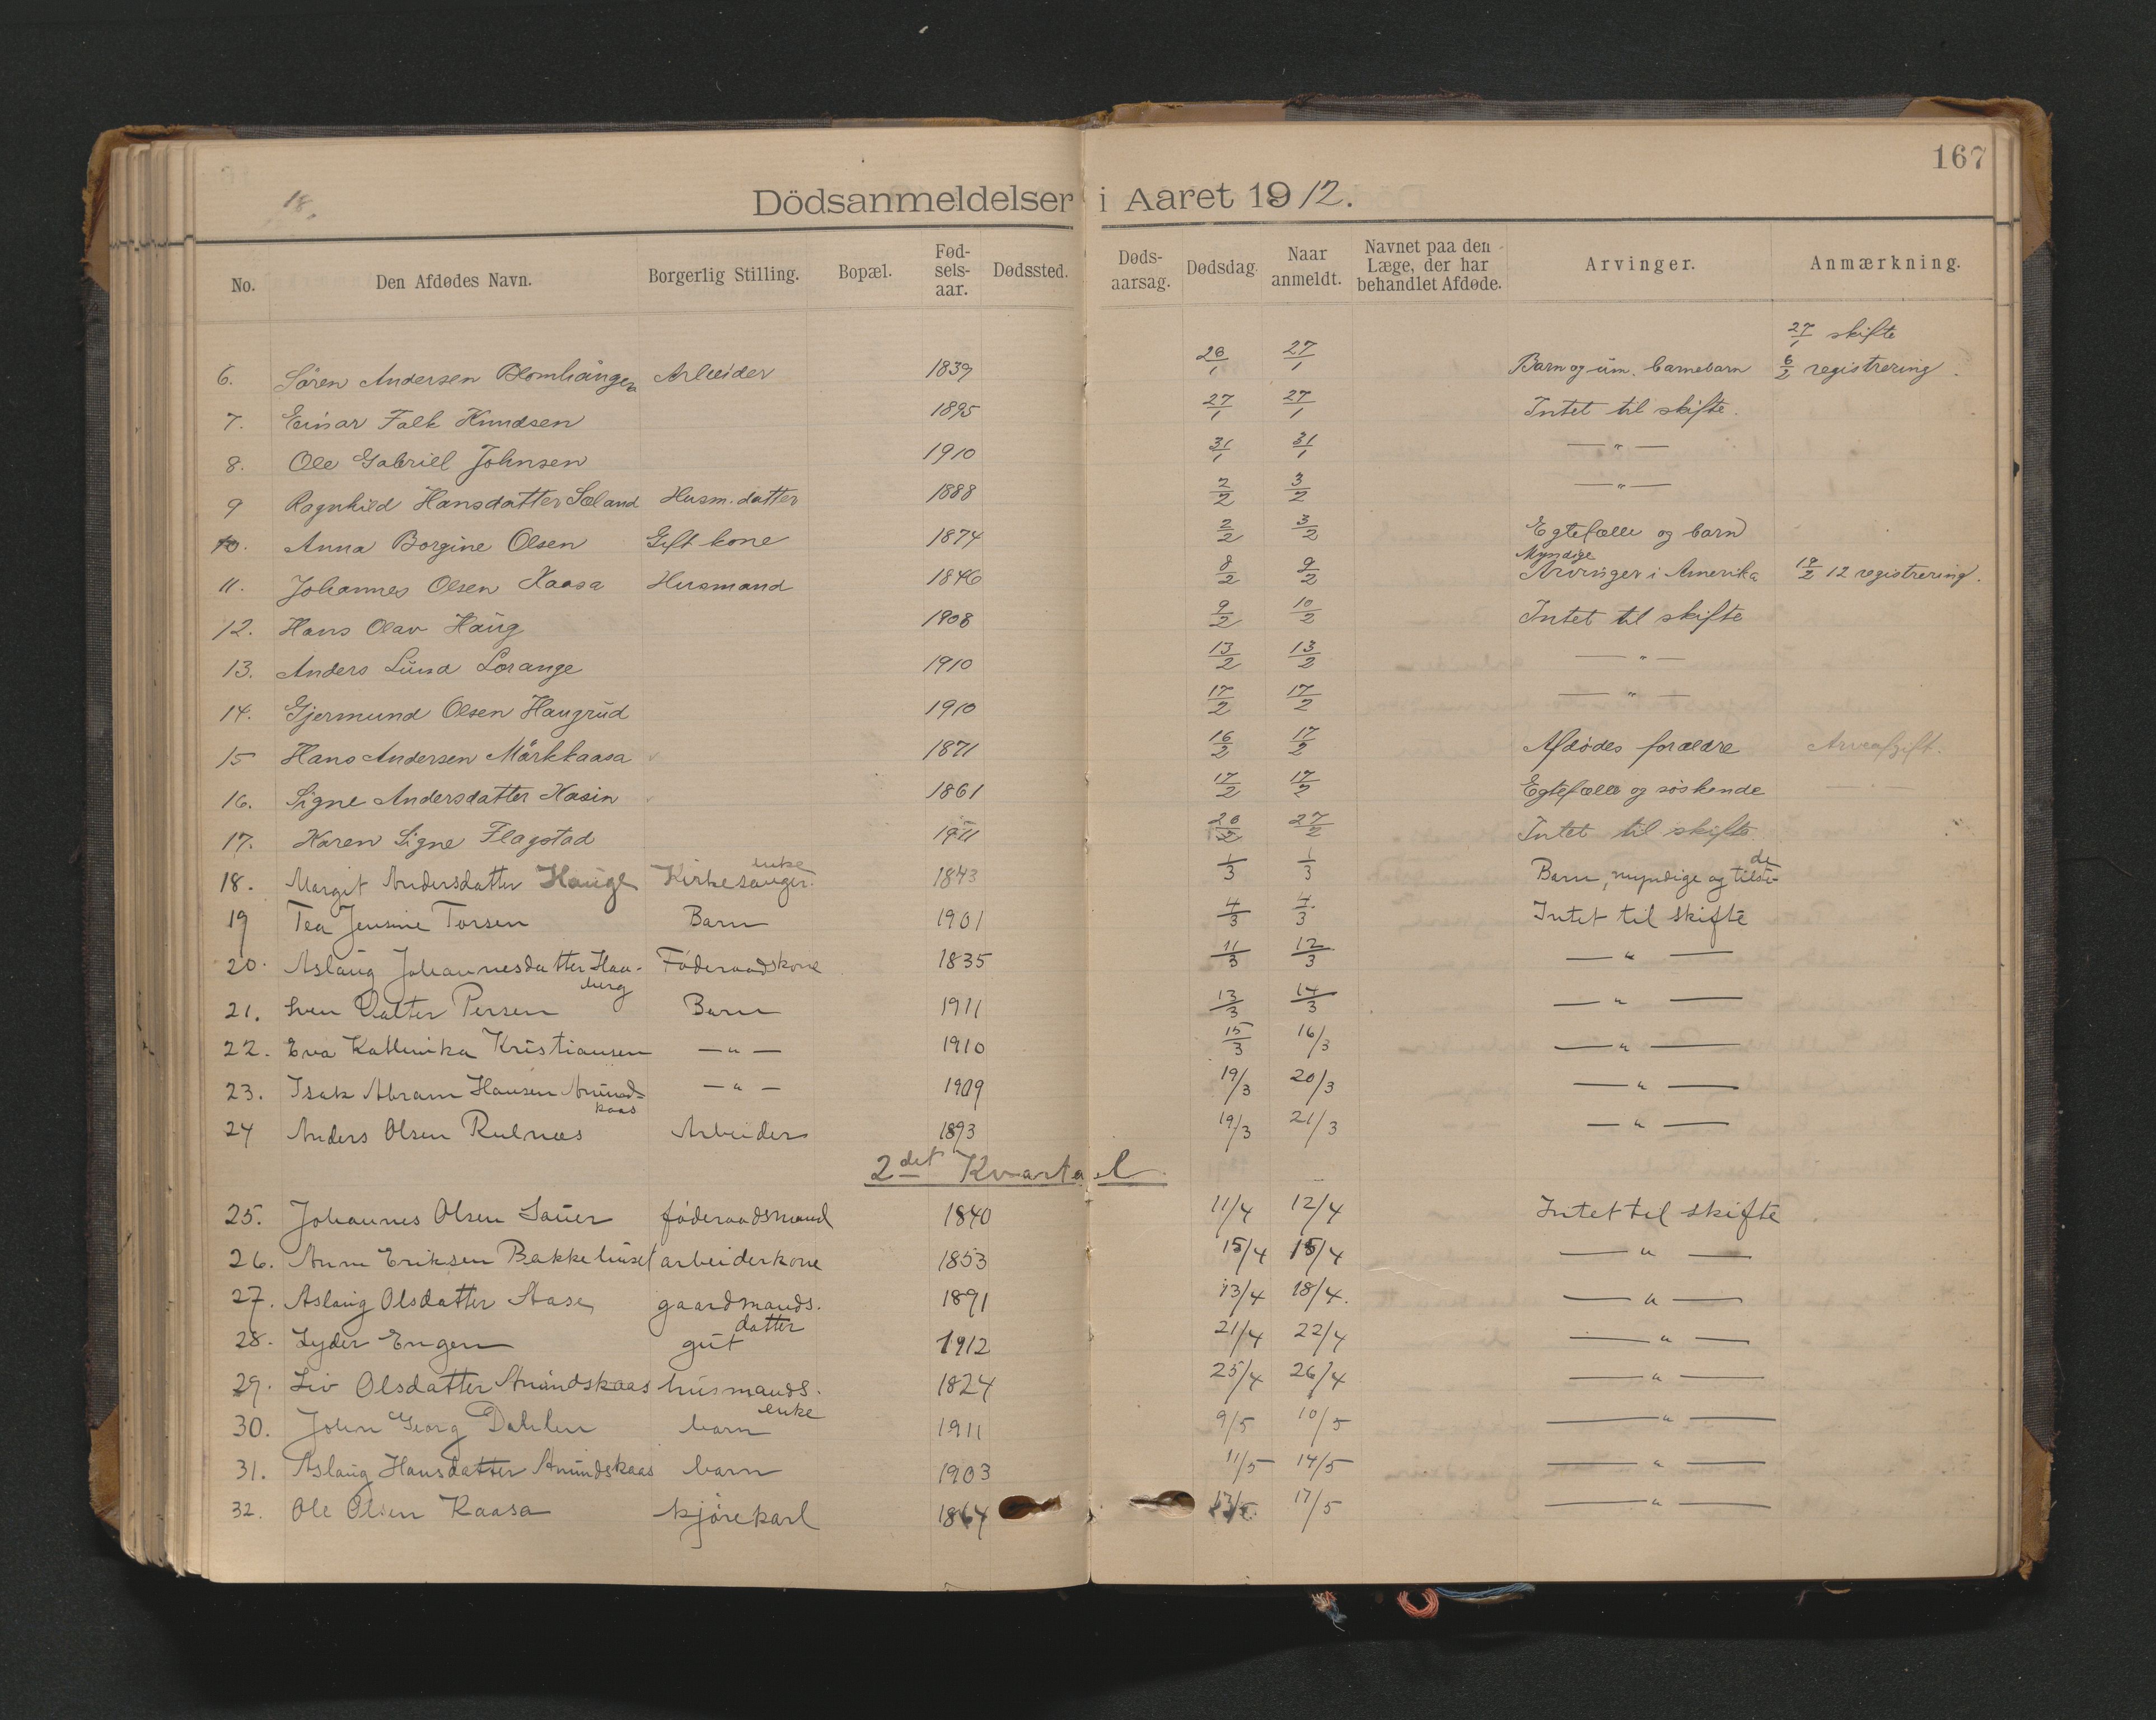 167
18.
Dödsanmeldelser i Aaret 1912.
No. Den Afdødes Navn. Borgerlig Stilling. Bopæl. Fød-sels-aar. Dødssted. Døds-aarsag. Dødsdag. Naar anmeldt. Navnet paa den Læge, der har behandlet Afdøde. Arvinger. Anmærkning.
27/1 skifte
6. Sören Andersen Blomhaugen Arbeider 1839 26/1 27/1 Barn og um. barnebarn 6/2 registrering.
7. Einar Falk Knudsen 1895 27/1 27/1 Intet til skifte.
8. Ole Gabriel Johnsen 1910 31/1 31/1 — " —
9 Ragnhild Hansdatter Sæland Husm. datter 1888 2/2 3/2 — " —
10. Anna Borgine Olsen Gift kone 1874 2/2 3/2 Egtefælle og barn
11. Johannes Olsen Kaasa Husmand 1846 8/2 9/2 Myndige Arvinger i Amerika 19/2 12 registrering.
12. Hans Olav Haug 1908 9/2 10/2 Intet til skifte
13. Anders Lund Lorange 1910 13/2 13/2 — " —
14. Gjermund Olsen Haugrud 1910 17/2 17/2 — " —
15 Hans Andersen Mårkkaasa 1871 16/2 17/2 Afdödes forældre Arveafgift.
16. Signe Andersdatter Kasin 1861 17/2 17/2 Egtefælle og söskende — " —
17. Karen Signe Flagstad 1911 26/2 27/2 Intet til skifte
18. Margit Andersdatter Hauge Kirkesanger enke 1843 1/3 1/3 Barn, myndige og tilste-de
19 Tea Jensine Torsen Barn 1901 4/3 4/3 Intet til skifte
20. Aslaug Johannesdatter Haa-berg Föderaadskone 1835 11/3 12/3 — " —
21. Sven Valter Persen Barn 1911 13/3 14/3 — " —
22. Eva Kathinka Kristiansen — " — 1910 15/3 16/3 — " —
23. Isak Abram Hansen Amund-kaas — " — 1909 19/3 20/3 — " —
24 Anders Olsen Rulnæs Arbeider 1893 19/3 21/3 — " —
2det Kvartal
25. Johannes Olsen Sauer föderaadsmand 1840 11/4 12/4 Intet til skifte
26. Anne Eriksen Bakkehuset arbeiderkone 1853 15/4 15/4 — " —
27. Aslaug Olsdatter Aase gaardmands. datter 1891 13/4 18/4. — " —
28. Lyder Engen gut 1912 21/4 22/4 — " —
29. Liv Olsdatter Amundskaas husmands. enke 1824 25/4 26/4 — " —
30. John Georg Dahlen barn 1911 9/5 10/5 — " —
31. Aslaug Hansdatter Amundskaas barn 1903 11/5 14/5 — " —
32. Ole Olsen Kaasa kjörekarl 1864 17/5 — " —